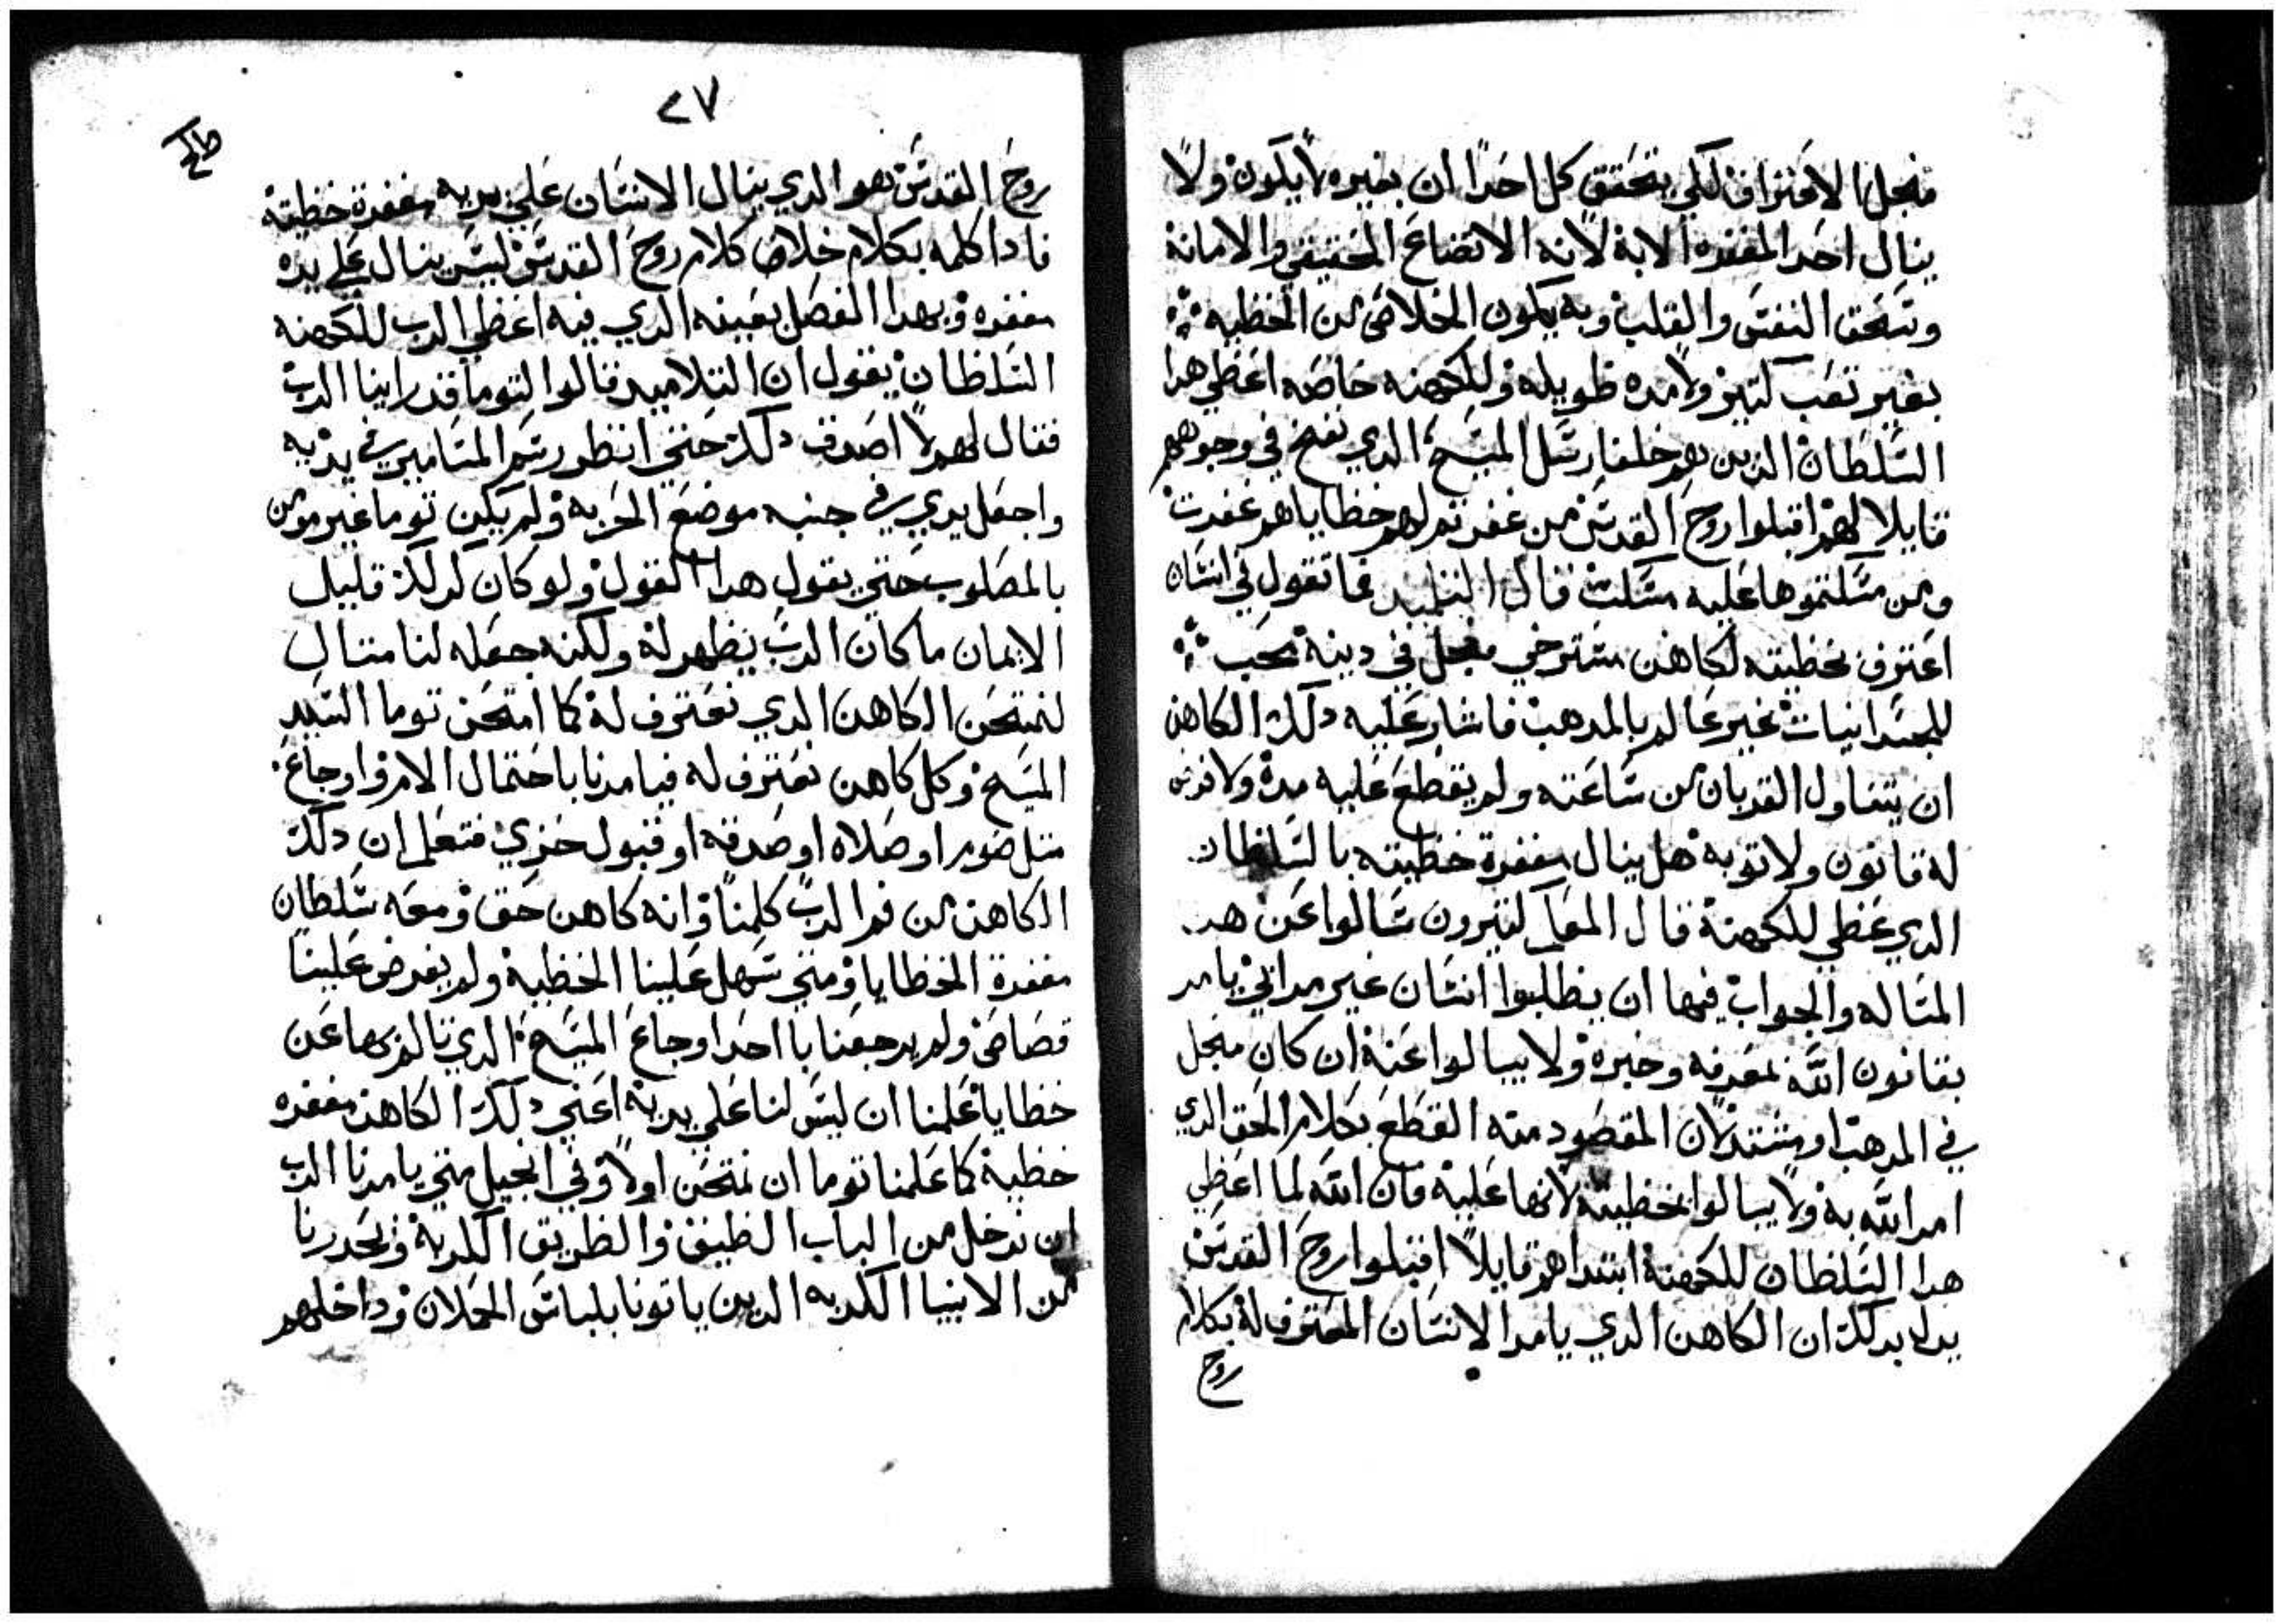 فجعل الاعتراف لكي يتحقق كل احدًا ان بغيره لا يكون ولا
ينال احد المغفره الا به لانه الاتضاع الحقيقي والامانة
وسَحق النفسَ والقلب وبه يكون الخلاص من الخطيه ؞
بغير تعب كتير ولا مده طويله وللكهنه خاصه اعَطي هدا
السَلطان الدين هم خلفا رسَل المسَيح الدي نفخ في وجوههم
قايلا لهم اقبلوا روحَ القدسَ من غفرتم لهم خطاياهم غفرت
ومن مسَكتموها عليه مسَكت قال التلميد فما تقول في انسَان
اعَترف بخطيته لكاهن مسَترخي مبجل في دينه محَب ؞
للجسَدانيات غير عَالم بالمدهب فاشار عَليه دلك الكاهن
ان يتناول القربان من سَاعَته ولم يقطع عَليه مدة ولا فرض
له قانون ولا توبه هل ينال مغفرة خطيته بالسَلطان
الدي عَطي للكهنة قال المعَلم كتيرون سَالوا عَن هد
المسَاله والجواب فيها ان يطلبوا انسَان غير مرايي يامر
بقانون الله بمعَرفه وخبره ولا يبالوا عَنه ان كان مبجل
في المدهب او مبتدي لان المقصود منه القطع بكلام الحق الدي
امر الله به ولا يبالوا بخطيته لانها عَليه فان الله لما اعَطي
هدا السَلطان للكهنة ابتداهم قايلاً اقبلوا روحَ القدسَ
يدل بدلك ان الكاهن الدي يامر الانسَان المعَترف له بكلام
روح
٢٧
روحَ القدسَ هو الدي ينال الانسَان عَلي يديه مغفرة خطيته
فادا كلمه بكلام خلاف كلام روحَ القدسَ ليسَ ينال عَلي يده
مغفره وبهدا الفصل بعَينه الدي فيه اعَطي الرب للكهنه
السَلطان يقول ان التلاميد قالوا لتوما قد راينا الرب
فقال لهم لا اصدق دلك حَتي انظر رسَم المسَامير في يديه
واجعَل يدي في جنبه موضع الحَربه ولم يكن توما غير مومن
بالمصلوب حَتي يقول هدا القول ولو كان كدلك قليل
الايمان ما كان الرب يظهر له ولكنه جعَله لنا متال
لنمتحَن الكاهن الدي نعَترف له كما امتحَن توما السَيد
المسَيح وكل كاهن نعَترف له فيامرنا باحَتمال الام واوجاعَ
متل صوم او صلاه او صدقه او قبول خزي فتعَلم ان دلك
الكاهن من فم الرب كلمنا وانه كاهن حَق ومعَه سَلطان
مغفرة الخطايا ومتي سَهل عَلينا الخطية ولم يفرض عَلينا
قصاص ولم يوجعَنا باحَد اوجاعَ المسَيح الدي تالم بها عَن
خطايانا عَلمنا ان ليسَ لنا عَلي يديه اعَني دلك الكاهن مغفره
خطية كما عَلمنا توما ان نمتحَن اولا وفي انجيل متي يامرنا الرب
ان ندخل من الباب الضيق والطريق الكربه ويحَدرنا
من الانبيا الكدبه الدين ياتونا بلباسَ الحَملان وداخلهم